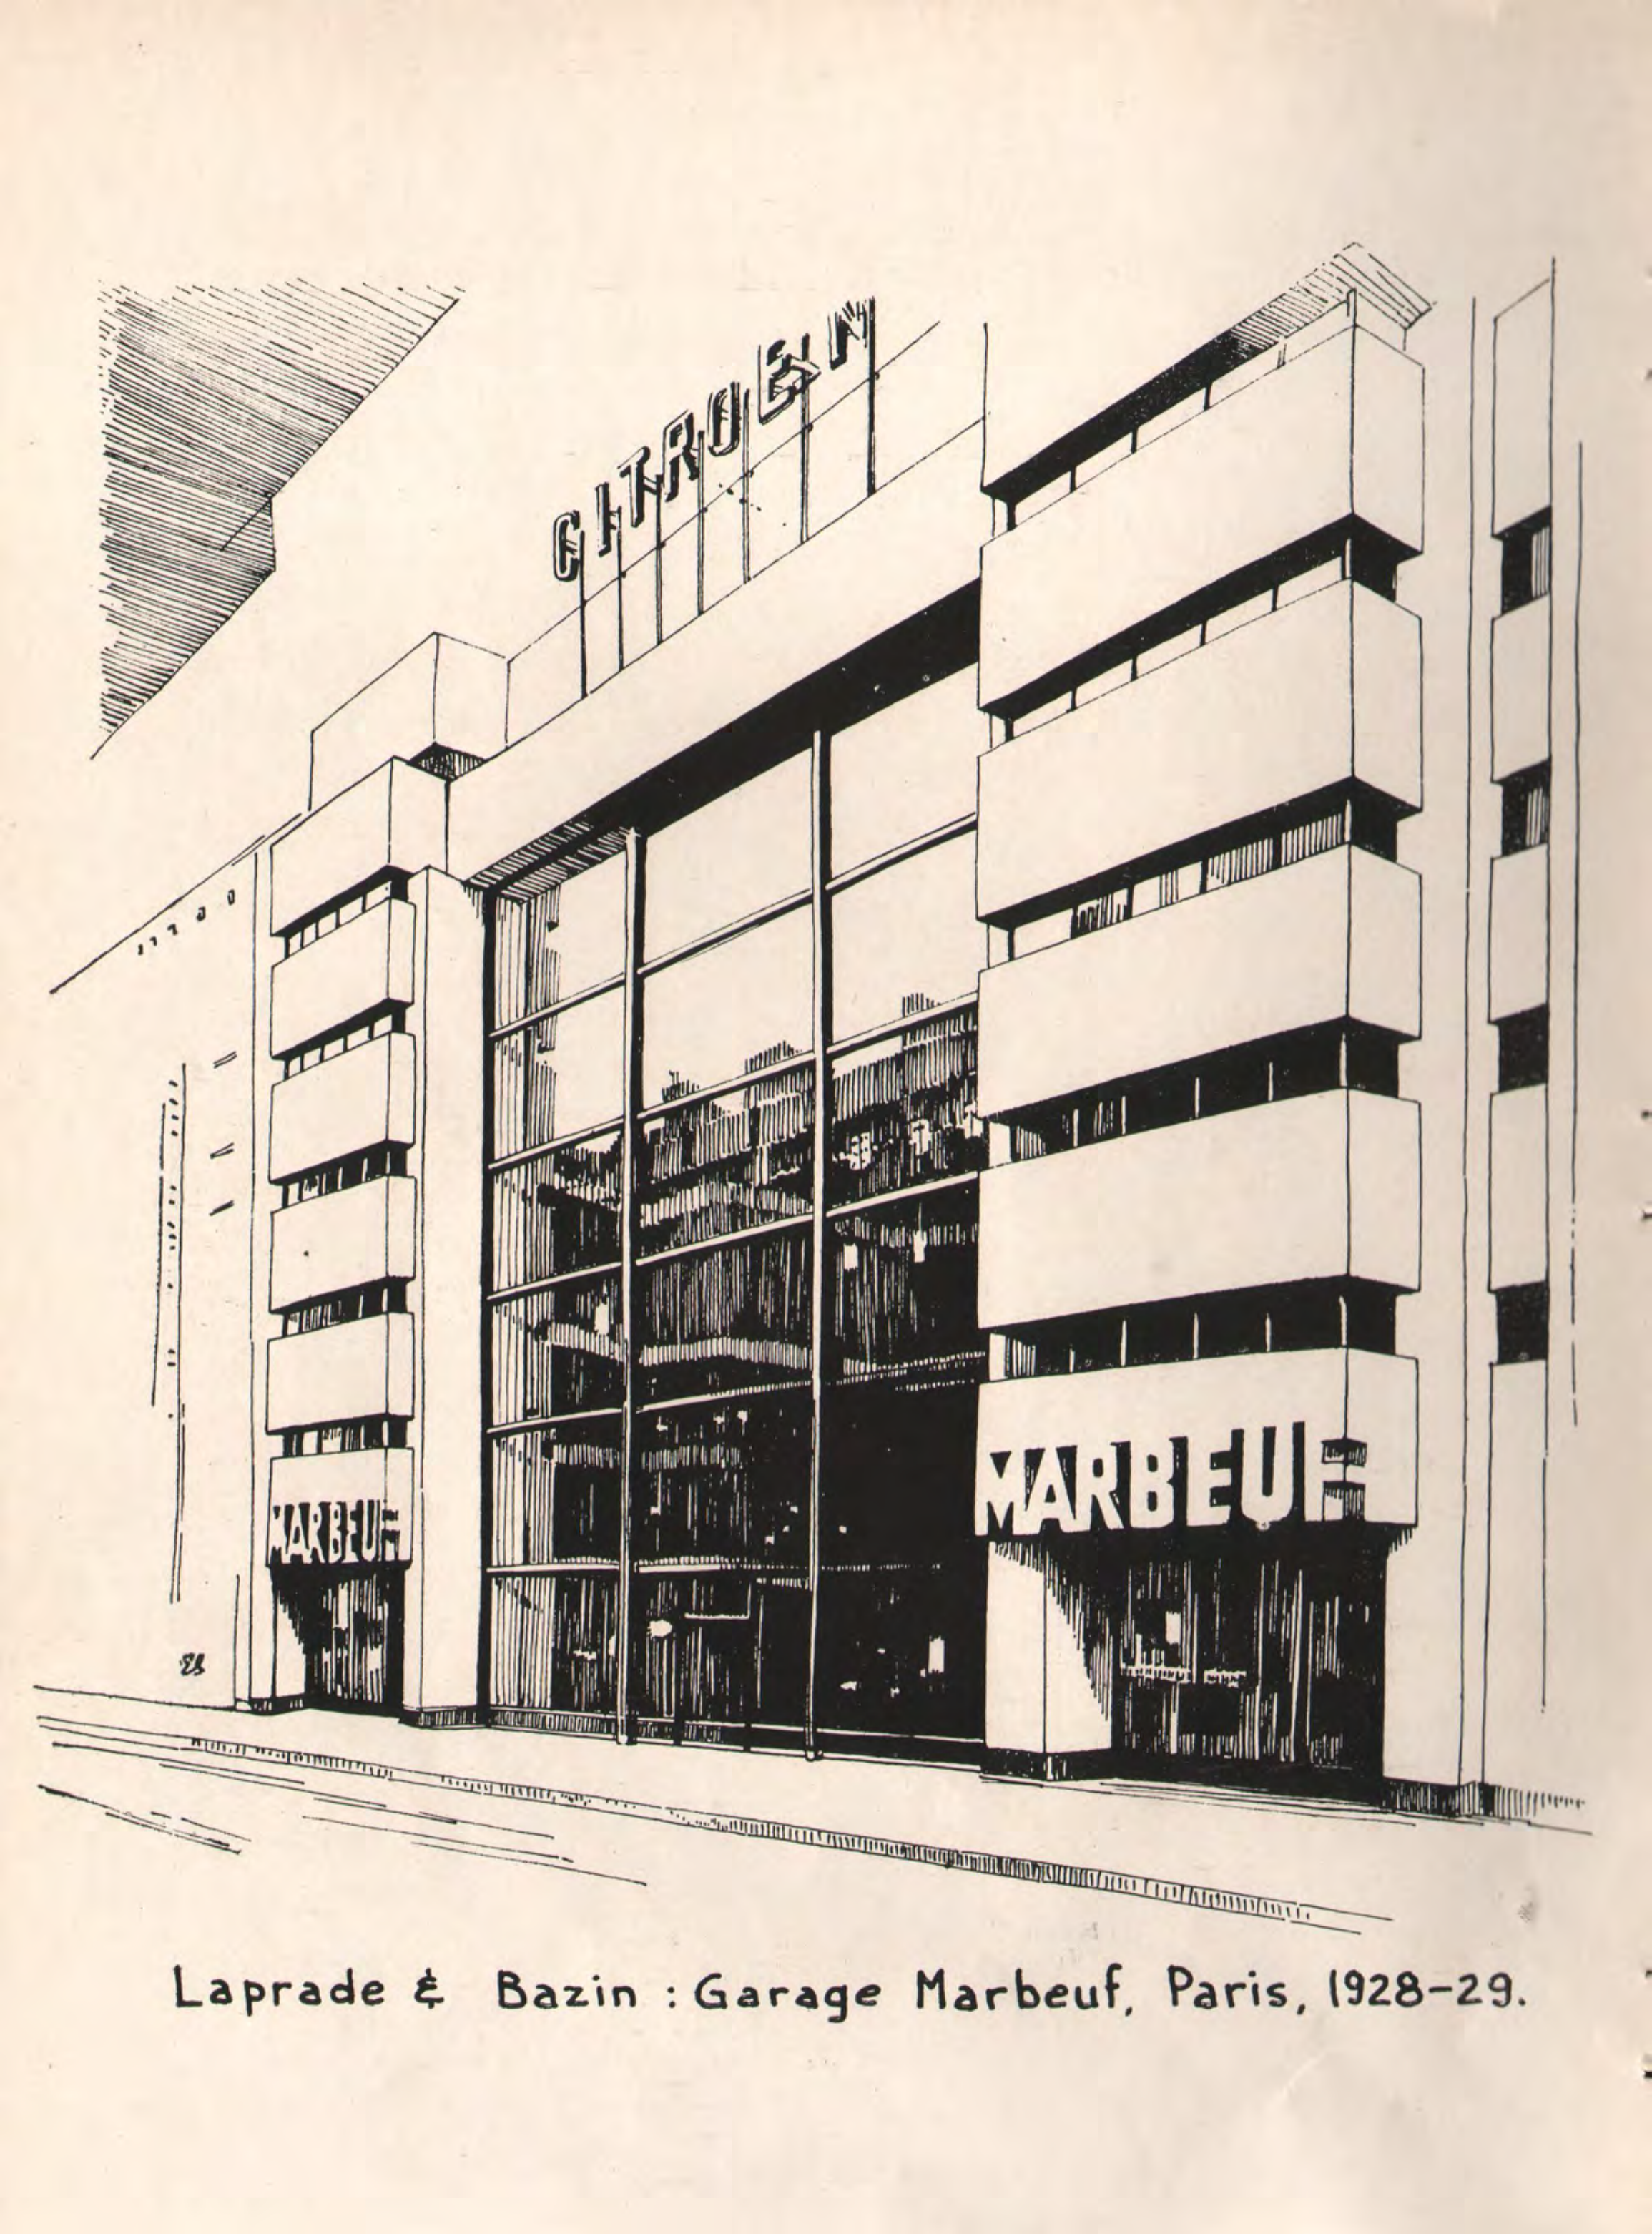 CITROEN
MARBEUF
MARBEUF
Laprade & Bazin : Garage Marbeuf, Paris, 1928-29.